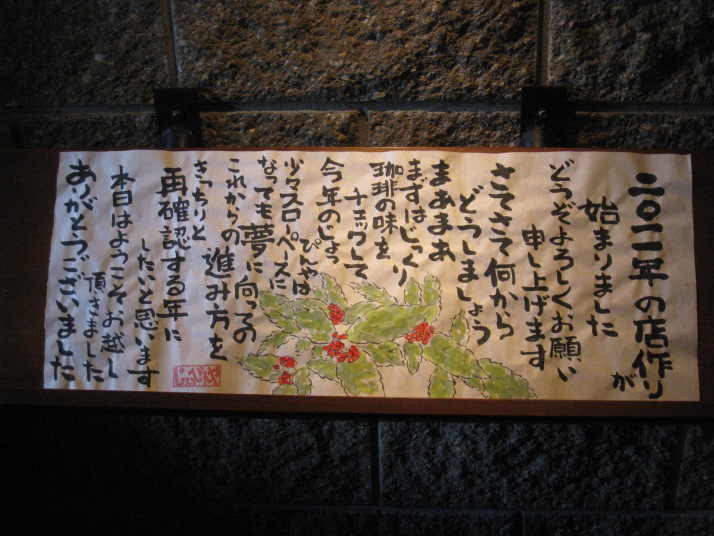 二〇一一年の店作りが
始まりました
どうぞよろしくお願い
申し上げます
さてさて何から
どうしましょう
まあまあ
まずはじっくり
珈琲の味を
チェックして
今年のじょ
ぴんやは
少々スローペースに
なっても夢に向っての
これからの進み方を
きっちりと
再確認する年に
したいと思います
本日はようこそお越し
頂きました
ありがとうございました